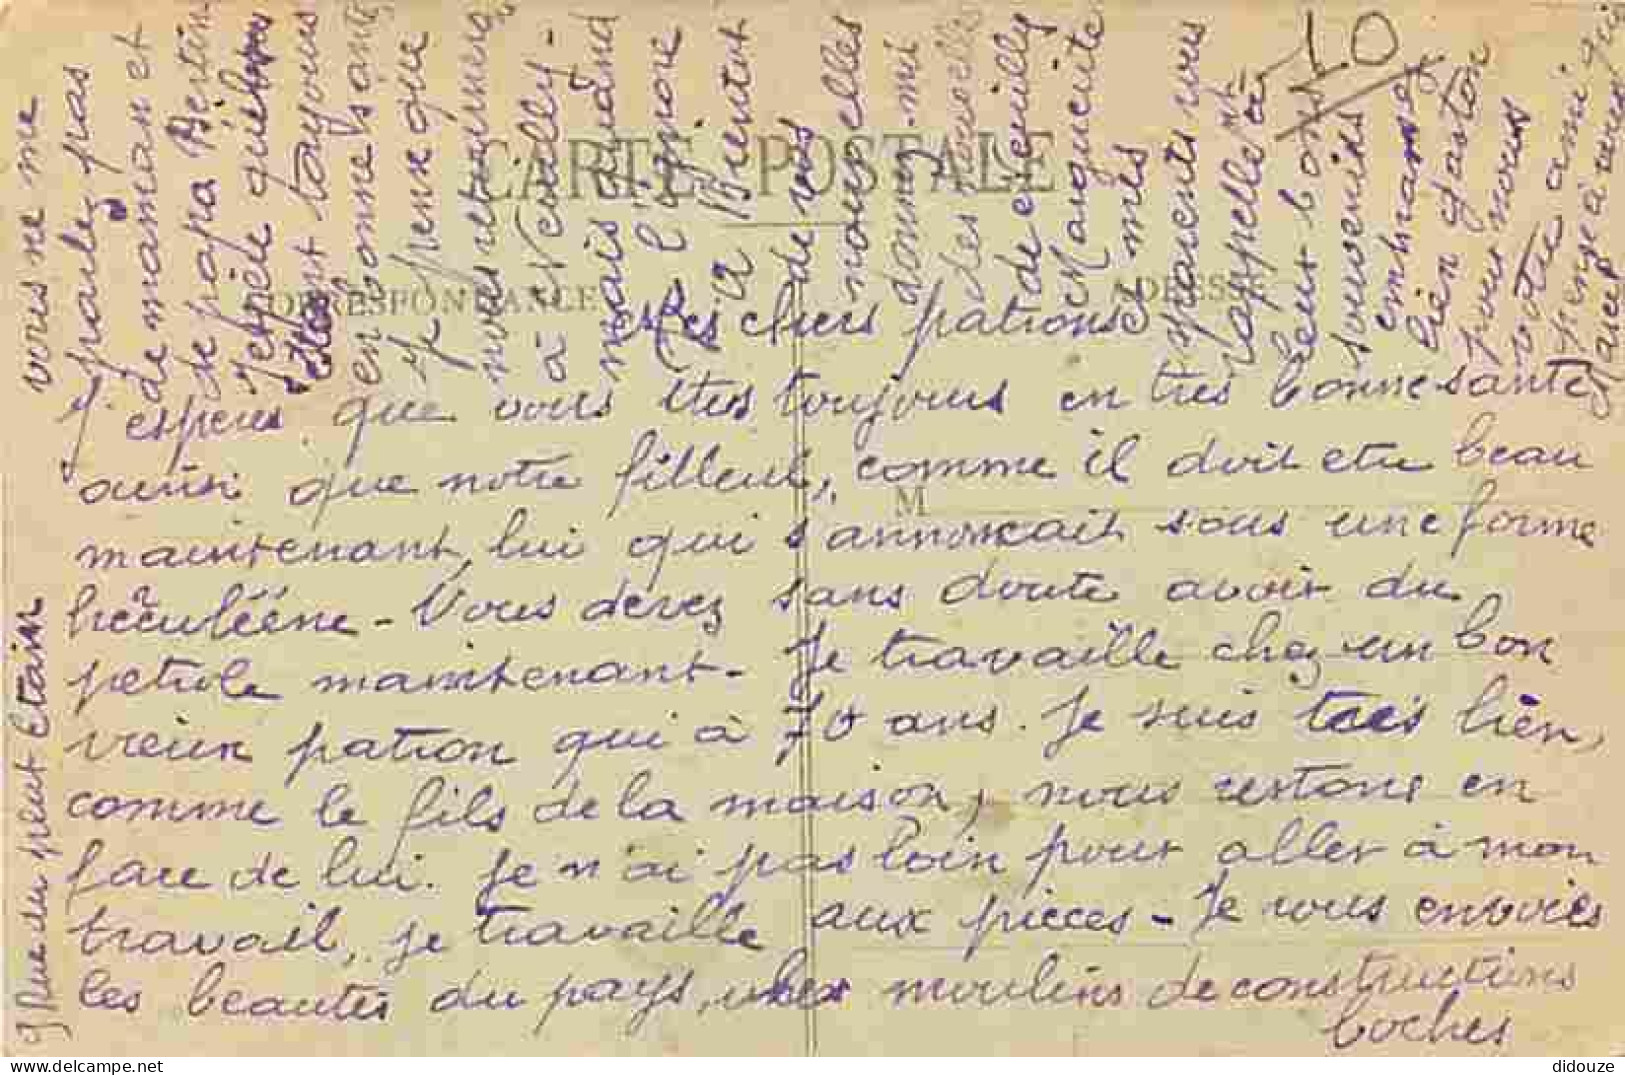 CARTE POSTALE
CORRESPONDANCE
ADRESSE
M
Mes chers patrons
J'esperes que vous êtes toujours en tres bonne santé
ainsi que notre filleul, comme il doit etre beau
maintenant, lui qui s'annoncait sous une forme
herculéène - Vous devez sans doute avoir du
petrole maintenant - Je travaille chez un bon
vieux patron qui à 70 ans. Je suis trés bien,
comme le fils de la maison, nous restons en
face de lui. Je n'ai pas loin pour aller à mon
travail, je travaille aux pièces - Je vous envoies
les beautés du pays, moulins de constructions
boches
vous ne me
parlez pas
de maman et
de papa Bertin
J'espère qu'ils
sont toujours
en bonne santé
Je pense que
vous retournerez
à Neuilly -
mais quand
je l'ignore
A Bientot
de vos
nouvelles
donnez-moi
des nouvelles
de Neuilly
Marguerite
et mes
parents vous
rappelle à
leurs bons
souvenirs
embrassez
bien gaston
pour nous
votre ami qui
pense à vous
Marcel
10
9 Rue du petit Etain
didouze